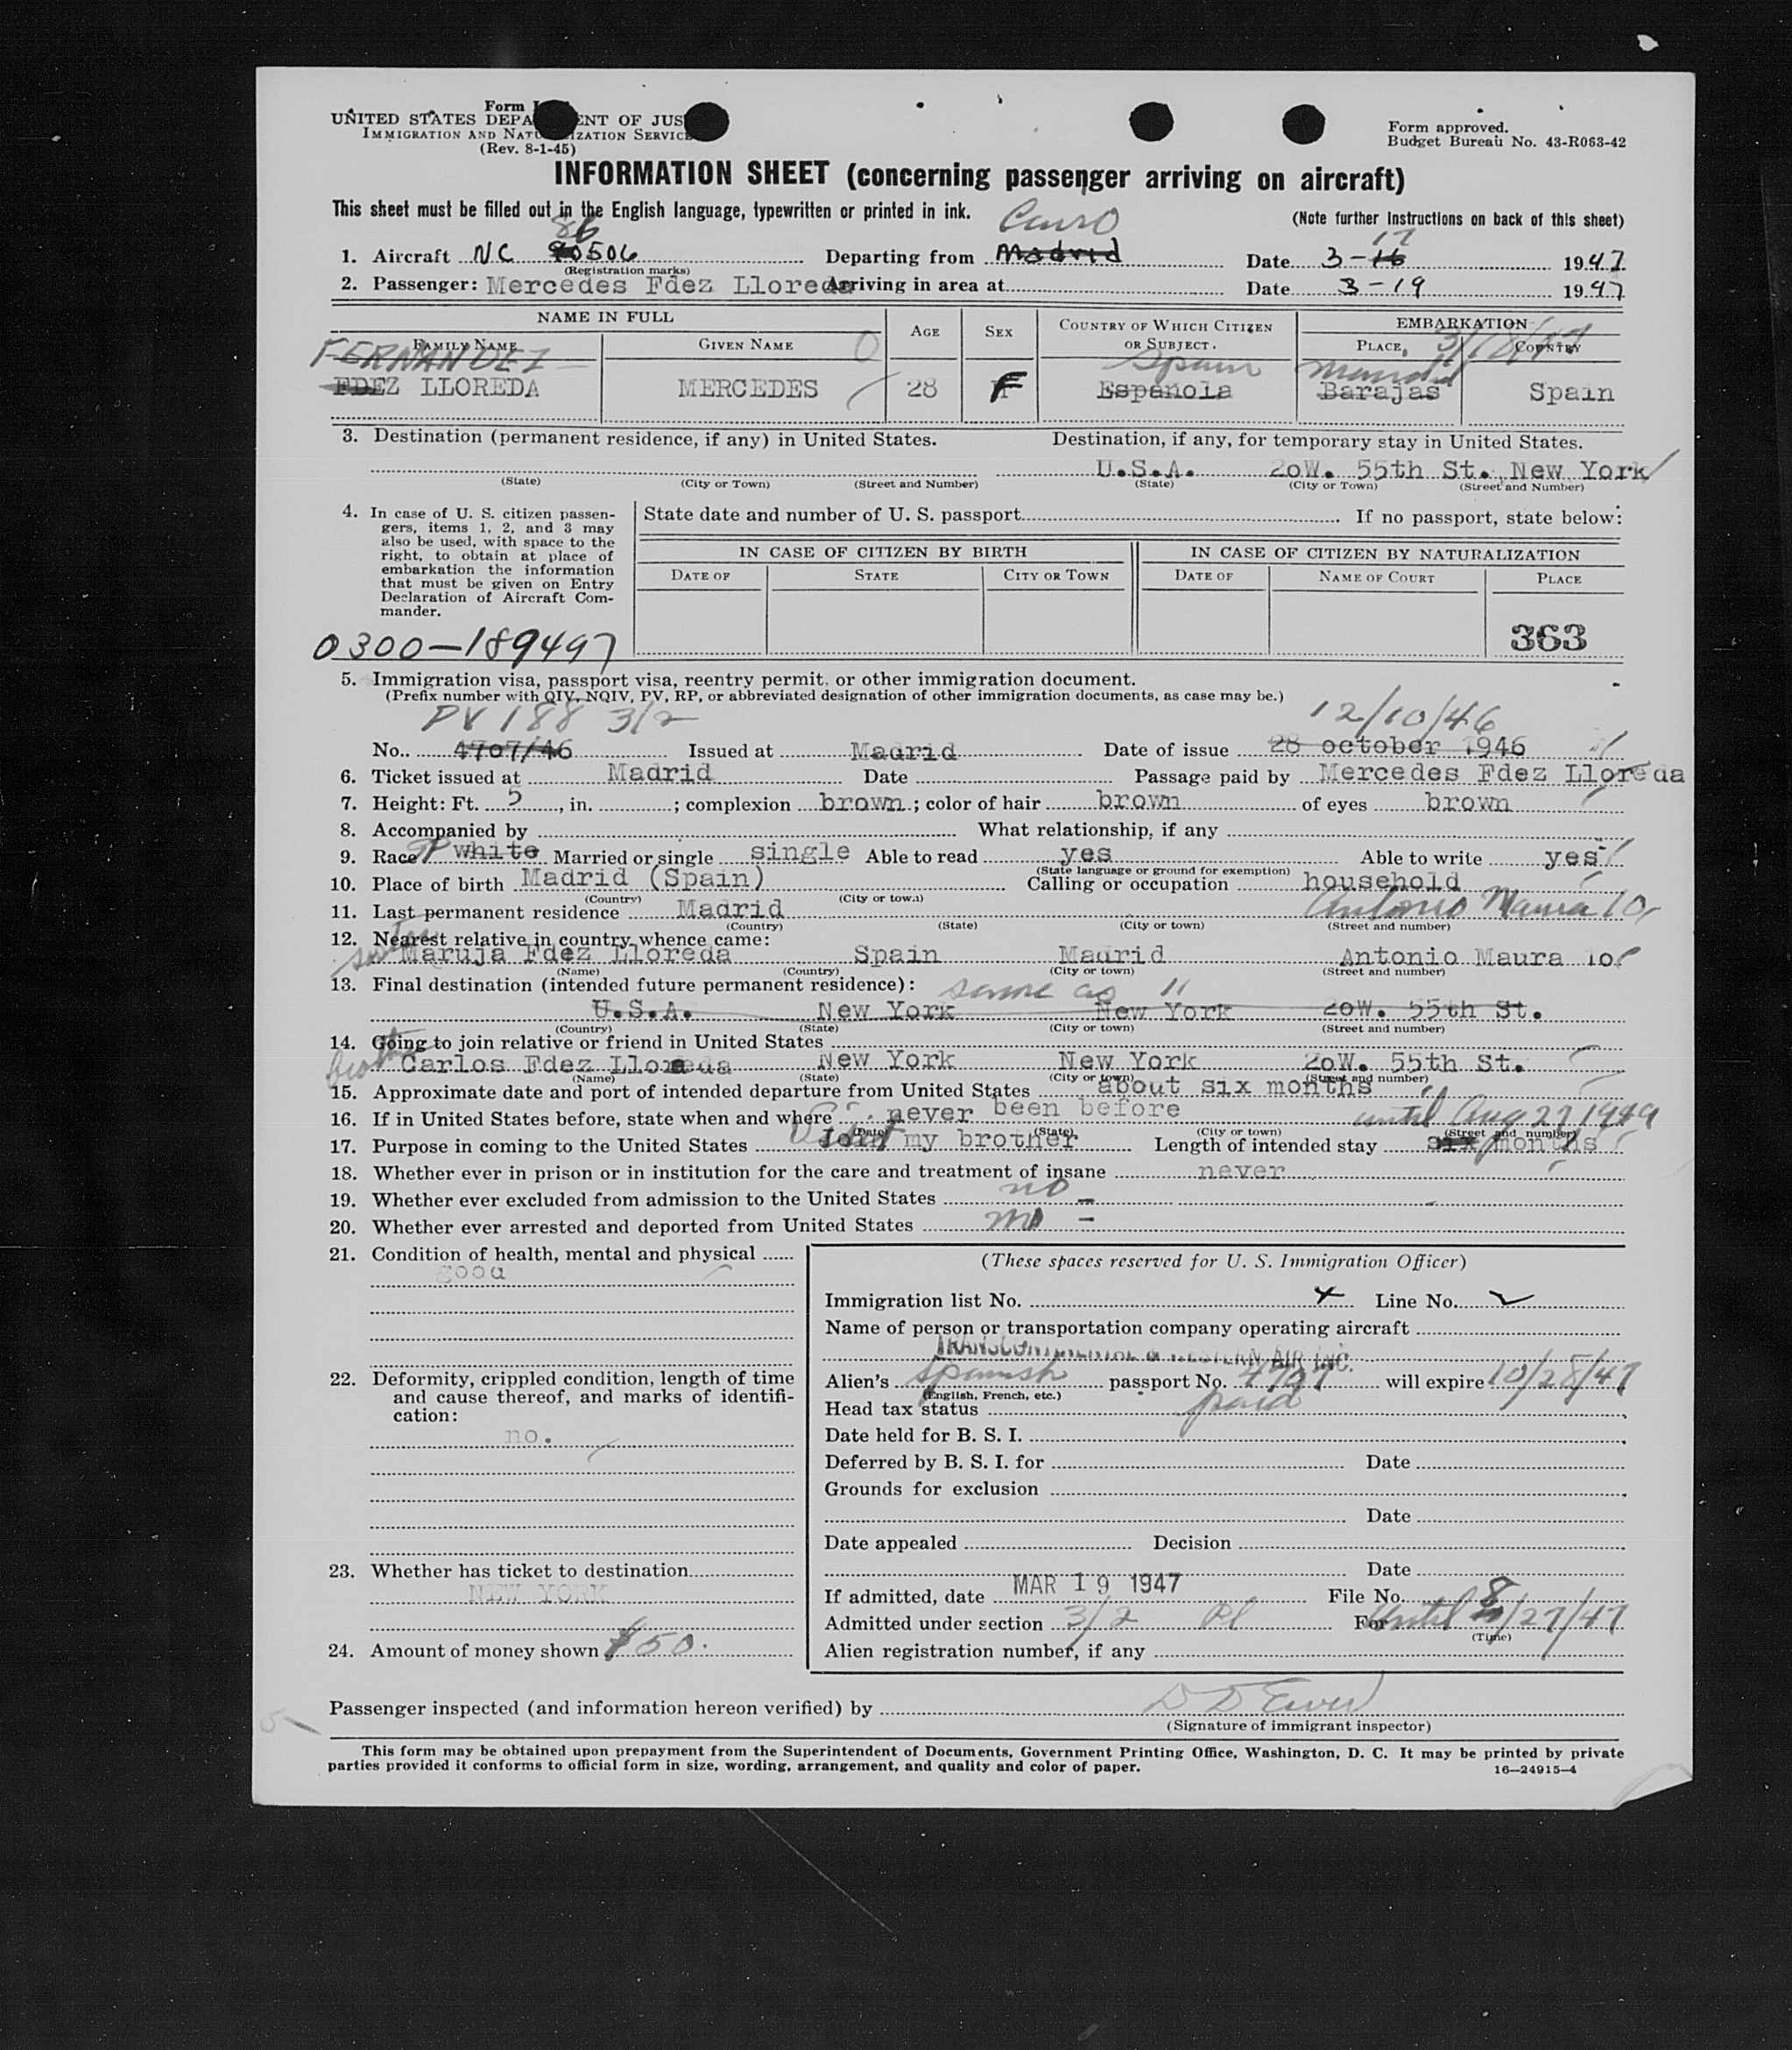 Form I
UNITED STATES DEPA ENT OF JUS
IMMIGRATION AND NATU IZATION SERVICE
(Rev. 8-1-45)
Form approved.
Budget Bureau No. 43-R063-42
INFORMATION SHEET (concerning passenger arriving on aircraft)
This sheet must be filled out in the English language, typewritten or printed in ink.
(Note further instructions on back of this sheet)
86 Cairo 17
1. Aircraft NC 90506 Departing from Madrid Date 3-16 1947
(Registration marks)
2. Passenger: Mercedes Fdez Lloreda Arriving in area at Date 3-19 1947
NAME IN FULL AGE SEX COUNTRY OF WHICH CITIZEN OR SUBJECT. EMBARKATION
FAMILY NAME GIVEN NAME PLACE, COUNTRY
FERNANDEZ 0 Spain Madrid 3/18/47
FDEZ LLOREDA MERCEDES 28 F Española Barajas Spain
3. Destination (permanent residence, if any) in United States. Destination, if any, for temporary stay in United States.
U.S.A. 2oW. 55th St., New York
(State) (City or Town) (Street and Number) (State) (City or Town) (Street and Number)
4. In case of U. S. citizen passen-
gers, items 1, 2, and 3 may
also be used, with space to the
right, to obtain at place of
embarkation the information
that must be given on Entry
Declaration of Aircraft Com-
mander.
State date and number of U. S. passport. If no passport, state below:
IN CASE OF CITIZEN BY BIRTH IN CASE OF CITIZEN BY NATURALIZATION
DATE OF STATE CITY OR TOWN DATE OF NAME OF COURT PLACE
0300-189497 363
5. Immigration visa, passport visa, reentry permit, or other immigration document.
(Prefix number with QIV, NQIV, PV, RP, or abbreviated designation of other immigration documents, as case may be.)
PV 188 3/2 12/10/46
No. 4707/46 Issued at Madrid Date of issue 28 october 1946
6. Ticket issued at Madrid Date Passage paid by Mercedes Fdez Lloreda
7. Height: Ft. 5, in. ; complexion brown ; color of hair brown of eyes brown
8. Accompanied by What relationship, if any
9. Race SP white Married or single single Able to read yes Able to write yes
(State language or ground for exemption)
10. Place of birth Madrid (Spain) Calling or occupation household
(Country) (City or town)
11. Last permanent residence Madrid Antonio Maura 10
(Country) (State) (City or town) (Street and number)
12. Nearest relative in country whence came:
sister Maruja Fdez Lloreda Spain Madrid Antonio Maura 1o
(Name) (Country) (City or town) (Street and number)
13. Final destination (intended future permanent residence): same as 11
U.S.A. New York New York 2oW. 55th St.
(Country) (State) (City or town) (Street and number)
14. Going to join relative or friend in United States
brother Carlos Fdez Lloreda New York New York 2oW. 55th St.
(Name) (State) (City or town) (Street and number)
15. Approximate date and port of intended departure from United States about six months
16. If in United States before, state when and where never been before until Aug 27 1949
(Date) (State) (City or town) (Street and number)
17. Purpose in coming to the United States Visit Join my brother Length of intended stay six months
18. Whether ever in prison or in institution for the care and treatment of insane never
19. Whether ever excluded from admission to the United States no -
20. Whether ever arrested and deported from United States no -
21. Condition of health, mental and physical
good
22. Deformity, crippled condition, length of time
and cause thereof, and marks of identifi-
cation:
no.
23. Whether has ticket to destination
NEW YORK
24. Amount of money shown $50.
(These spaces reserved for U. S. Immigration Officer)
Immigration list No. Line No.
Name of person or transportation company operating aircraft
TRANSCONTINENTAL & WESTERN AIR INC.
Alien's Spanish passport No. 4707 will expire 10/28/47
(English, French, etc.)
Head tax status paid
Date held for B. S. I.
Deferred by B. S. I. for Date
Grounds for exclusion
Date
Date appealed Decision
Date
If admitted, date MAR 19 1947 File No.
Admitted under section 3/2 For until 8/27/47
(Time)
Alien registration number, if any
Passenger inspected (and information hereon verified) by
(Signature of immigrant inspector)
This form may be obtained upon prepayment from the Superintendent of Documents, Government Printing Office, Washington, D. C. It may be printed by private
parties provided it conforms to official form in size, wording, arrangement, and quality and color of paper. 16—24915-4